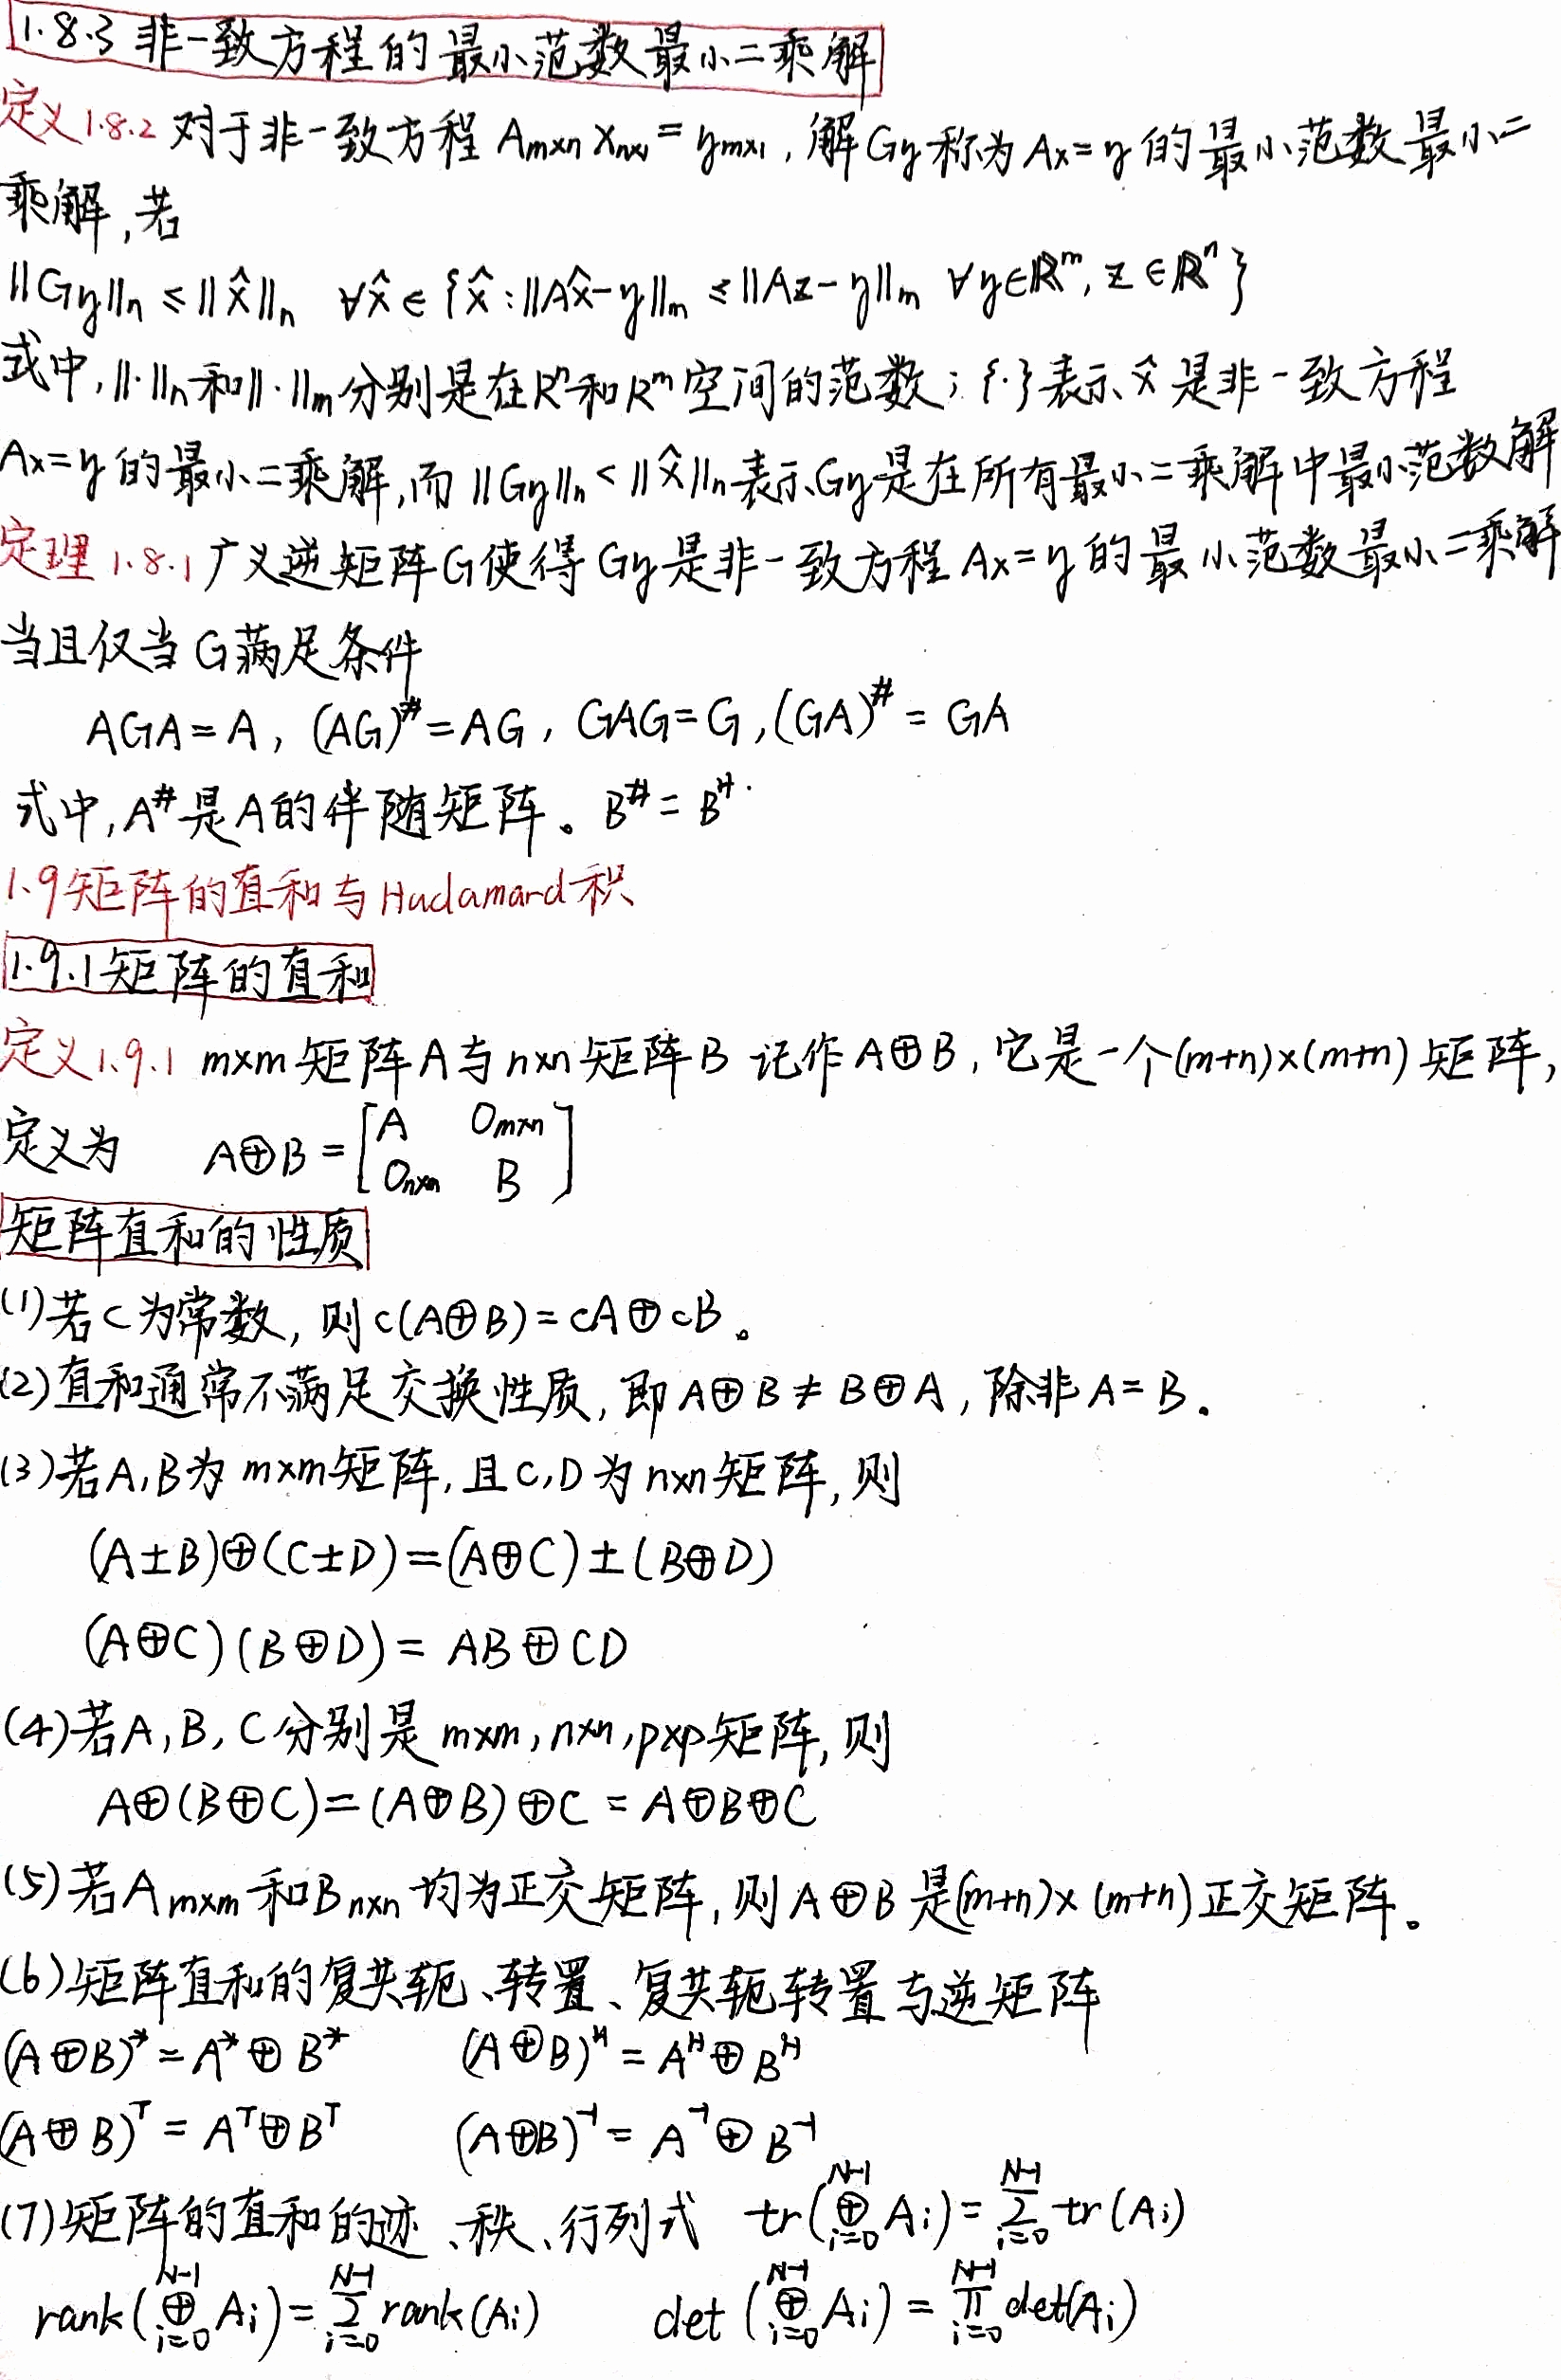 1.8.3 非一致方程的最小范数最小二乘解
定义1.8.2 对于非一致方程 Aₘₓₙ Xₙₓ₁ = yₘₓ₁, 解Gy称为Ax=y的最小范数最小二
乘解,若
||Gy||ₙ ≤ ||x̂||ₙ ∀x̂ ∈ {x̂:||Ax̂-y||ₘ ≤ ||Az-y||ₘ ∀y∈ℝᵐ, z∈ℝⁿ}
式中,||·||ₙ和||·||ₘ分别是在Rⁿ和Rᵐ空间的范数; {·}表示x̂是非一致方程
Ax=y的最小二乘解,而||Gy||ₙ<||x̂||ₙ表示Gy是在所有最小二乘解中最小范数解
定理1.8.1 广义逆矩阵G使得Gy是非一致方程Ax=y的最小范数最小二乘解
当且仅当G满足条件
AGA=A, (AG)^#=AG, GAG=G, (GA)^#=GA
式中,A^#是A的伴随矩阵。B^#=Bᴴ.
1.9矩阵的直和与Hadamard积
1.9.1矩阵的直和
定义1.9.1 m×m矩阵A与n×n矩阵B 记作A⊕B, 它是一个(m+n)×(m+n)矩阵,
定义为 A⊕B = [A 0ₘₓₙ
0ₙₓₘ B]
矩阵直和的性质
(1)若c为常数, 则c(A⊕B)=cA⊕cB。
(2)直和通常不满足交换性质, 即A⊕B≠B⊕A, 除非A=B。
(3)若A,B为m×m矩阵, 且C,D为n×n矩阵, 则
(A±B)⊕(C±D)=(A⊕C)±(B⊕D)
(A⊕C)(B⊕D)=AB⊕CD
(4)若A,B,C分别是m×m,n×n,p×p矩阵, 则
A⊕(B⊕C)=(A⊕B)⊕C=A⊕B⊕C
(5)若Aₘₓₘ和Bₙₓₙ均为正交矩阵, 则A⊕B是(m+n)×(m+n)正交矩阵。
(6)矩阵直和的复共轭、转置、复共轭转置与逆矩阵
(A⊕B)*=A*⊕B* (A⊕B)ᴴ=Aᴴ⊕Bᴴ
(A⊕B)ᵀ=Aᵀ⊕Bᵀ (A⊕B)⁻¹=A⁻¹⊕B⁻¹
(7)矩阵的直和的迹、秩、行列式 tr(⊕_{i=0}^{N-1} Aᵢ)=∑_{i=0}^{N-1} tr(Aᵢ)
rank(⊕_{i=0}^{N-1} Aᵢ)=∑_{i=0}^{N-1} rank(Aᵢ) det(⊕_{i=0}^{N-1} Aᵢ)=∏_{i=0}^{N-1} det(Aᵢ)